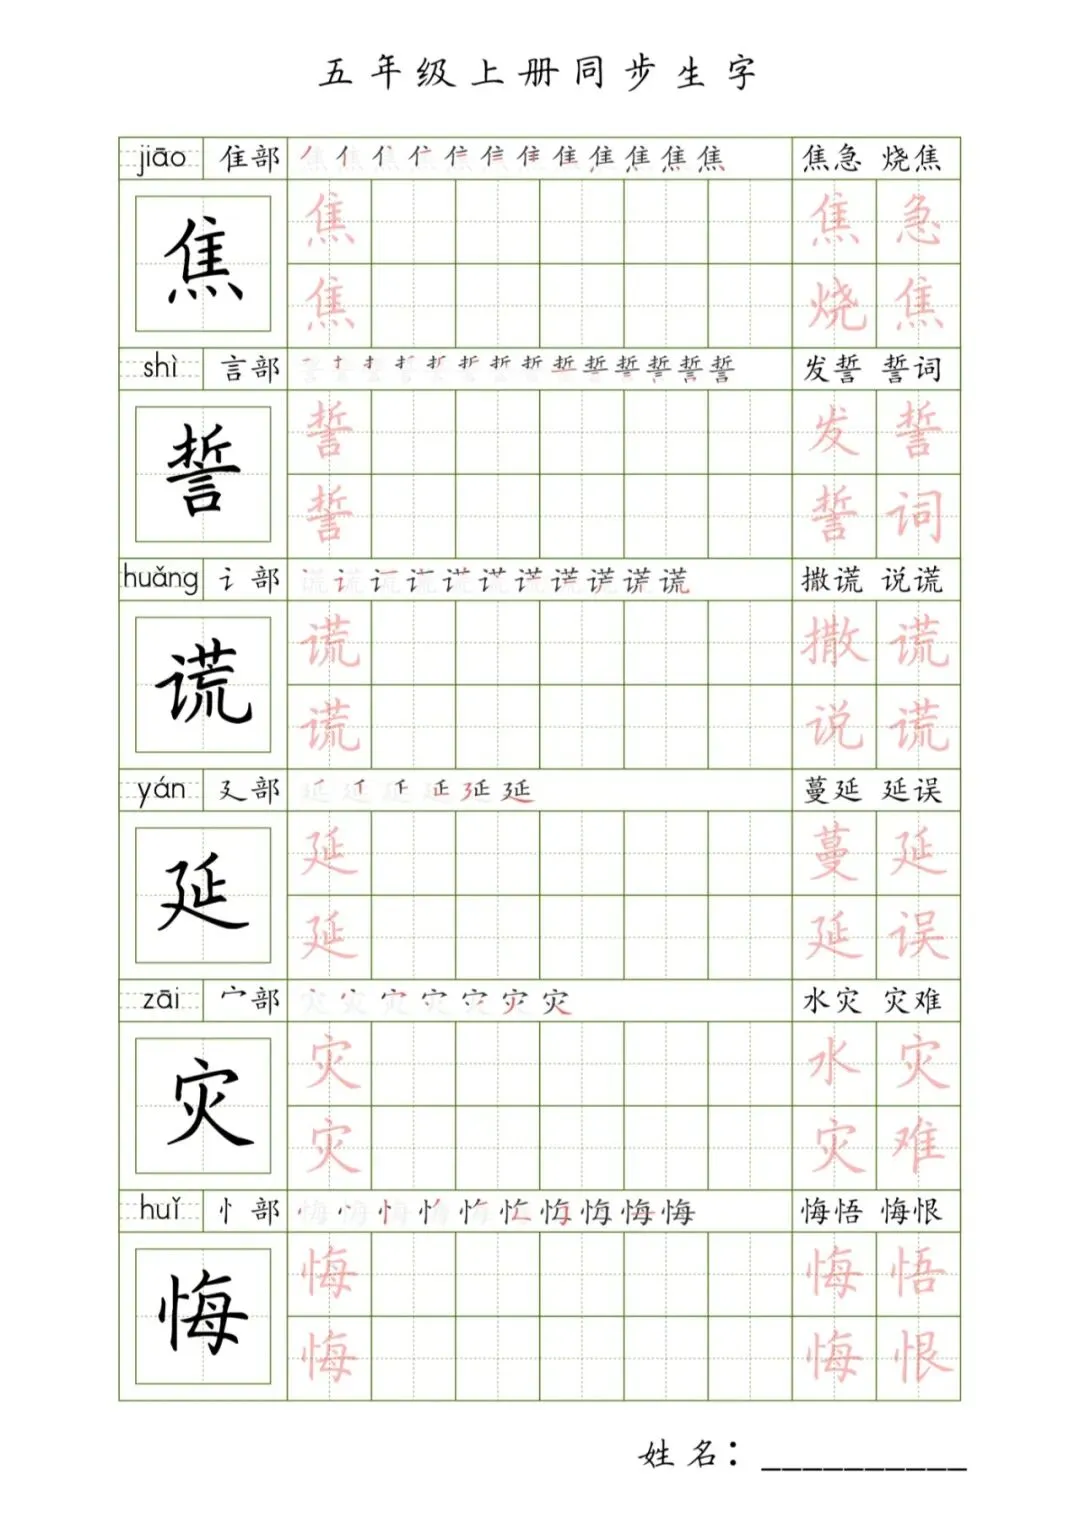 五年级上册同步生字
jiāo 隹部 焦急 烧焦
焦 焦 焦急
焦 烧焦
shì 言部 发誓 誓词
誓 誓 发誓
誓 誓词
huǎng 讠部 撒谎 说谎
谎 谎 撒谎
谎 说谎
yán 廴部 蔓延 延误
延 延 蔓延
延 延误
zāi 宀部 水灾 灾难
灾 灾 水灾
灾 灾难
huǐ 忄部 悔悟 悔恨
悔 悔 悔悟
悔 悔恨
姓名：__________